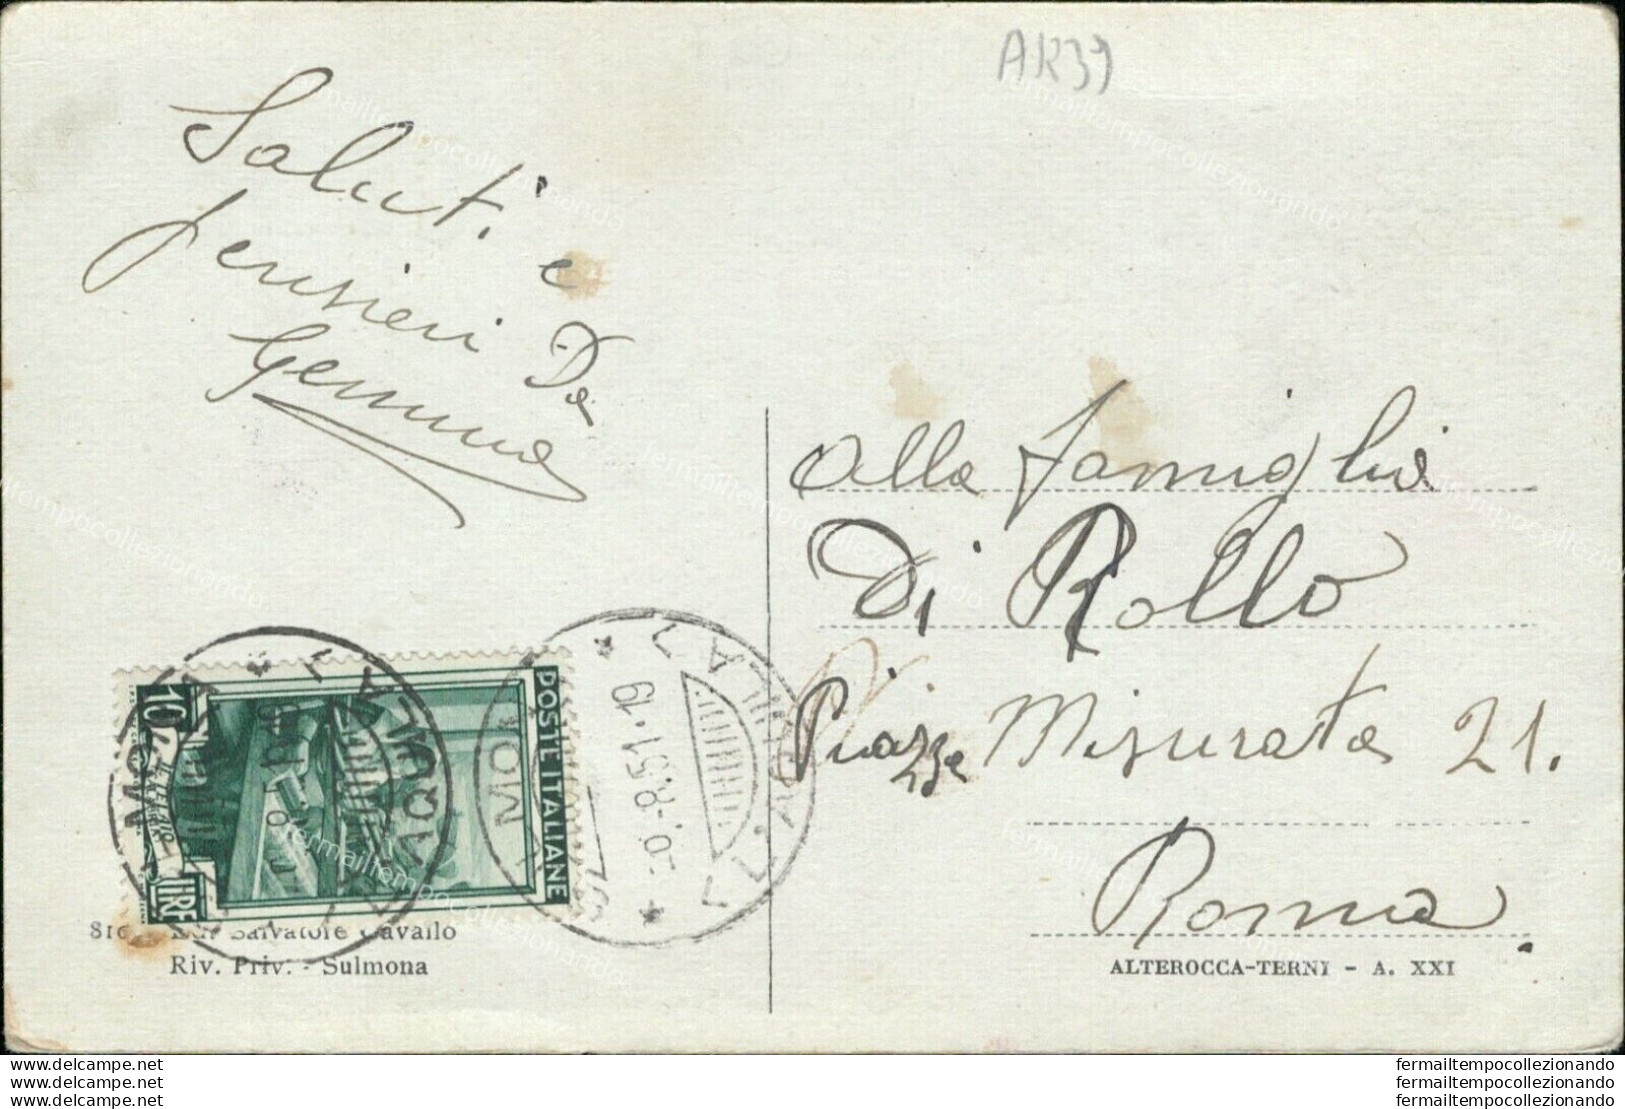 AK39
Saluti e
pensieri Da
Gemma
alla famiglia
Di Rollo
Piazza Misurata 21.
Roma
POSTE ITALIANE
10
LIRE
L'AQUILA
19.1.51.8
Salvatore Cavallo
Riv. Priv. - Sulmona
ALTEROCCA-TERNI - A. XXI
fermailtempocollezionando
fermailtempocollezionando
fermailtempocollezionando
delcampe.net
delcampe.net
delcampe.net